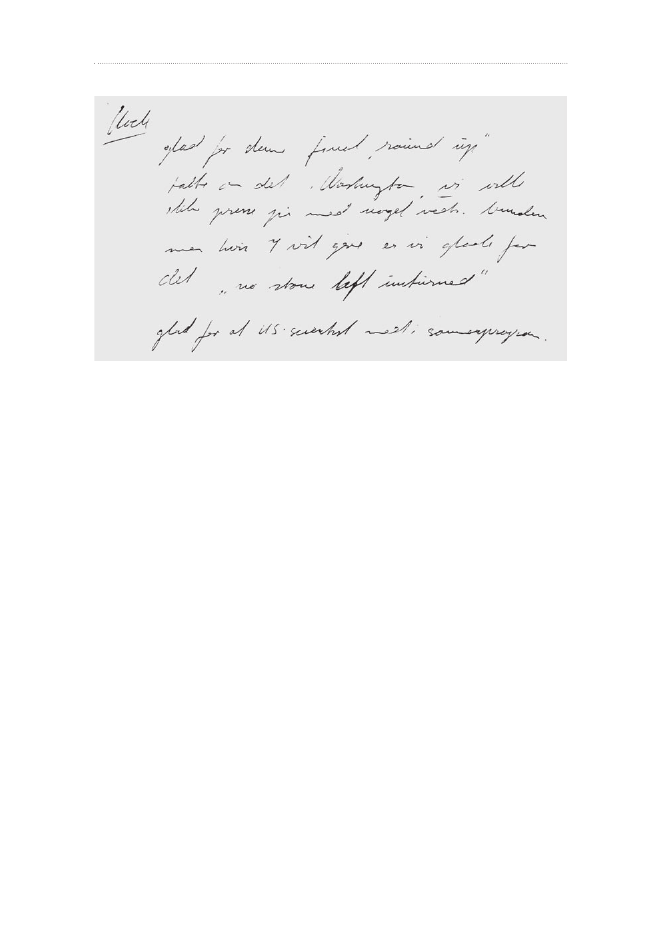 Koch
glad for denne final „round up"
talte om det i Washington, vi ville
ikke presse jer med noget vedr. bunden
men hvis I vil gøre er vi glade for
det „no stone left unturned"
glad for at US-scientist med i sommerprogram.